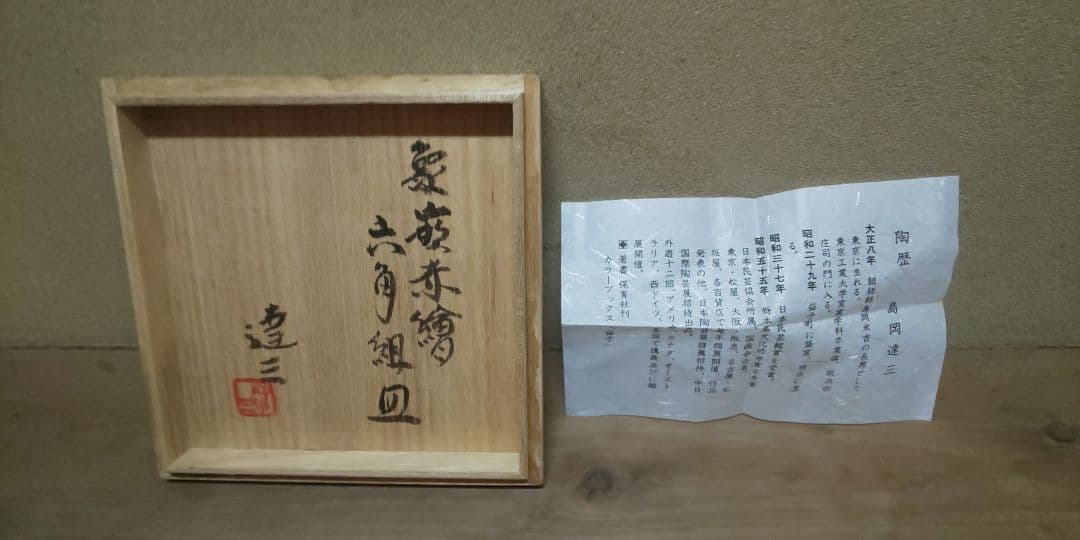 象嵌赤繪
六角組皿
達三
陶歴
島岡達三
大正八年 組紐師島岡米吉の長男として
東京に生れる。
東京工業大学窯業学科卒業後、故浜田
庄司の門に入る。
昭和二十九年 益子町に築窯、現在に至
る。
昭和三十七年 日本民芸館賞を受賞。
昭和五十五年 栃木県文化功労賞を受賞
日本民芸協会所属、国画会会員、
東京・松屋、大阪・阪急、名古屋・松
坂屋、各百貨店で毎年個展開催、作品
発表の他、日本陶芸展推薦招待、中日
国際陶芸展招待出品。
外遊十二回、アメリカ、カナダ、オースト
ラリア、西ドイツ、各国で講義並びに個
展開催。
著書 保育社刊
カラーブックス 益子